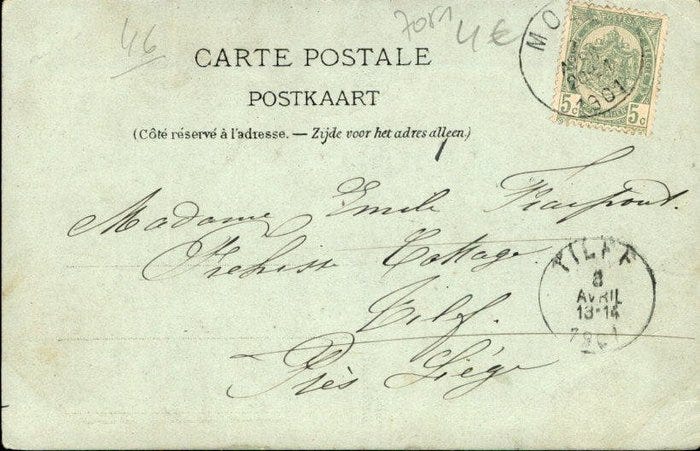 46
4€
CARTE POSTALE
POSTKAART
(Côté réservé à l'adresse. — Zijde voor het adres alleen.)
MO
1901
5c 5c
Madame Emile Fraipont.
Cottage.
Tilf.
Près Liége
TILFF
8
AVRIL
13-14
1901